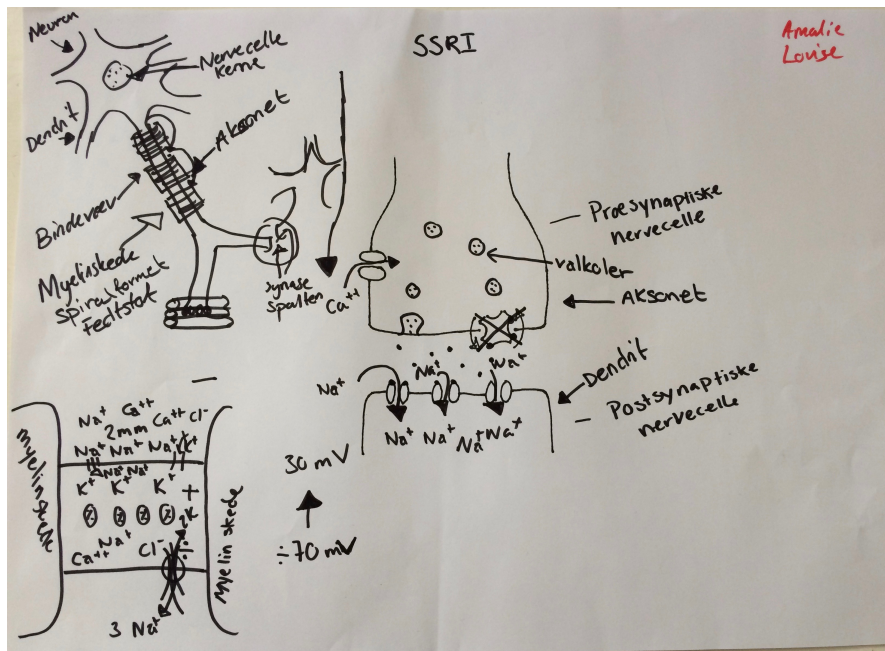 SSRI
Amalie
Lovise
Neuron
Nervecelle
Kerne
Dendrit
Aksonet
Bindevæv
Myelinskede
Spiralformet
Fedtstof
synapse
Spalten
Præsynaptiske
nervecelle
valkoler
Aksonet
Ca⁺⁺
Na⁺ Na⁺ Na⁺
Dendrit
Postsynaptiske
nervecelle
Na⁺ Na⁺ Na⁺ Na⁺
30 mV
÷70 mV
Myelinskede
Na⁺ Ca⁺⁺ Ca⁺⁺ Cl⁻
2mm
Na⁺ Na⁺ Na⁺ K⁺
Na⁺ Na⁺
K⁺ K⁺ K⁺ +
2K⁺
Na⁺
Ca⁺⁺ Cl⁻ ÷
3 Na⁺
Myelin skede